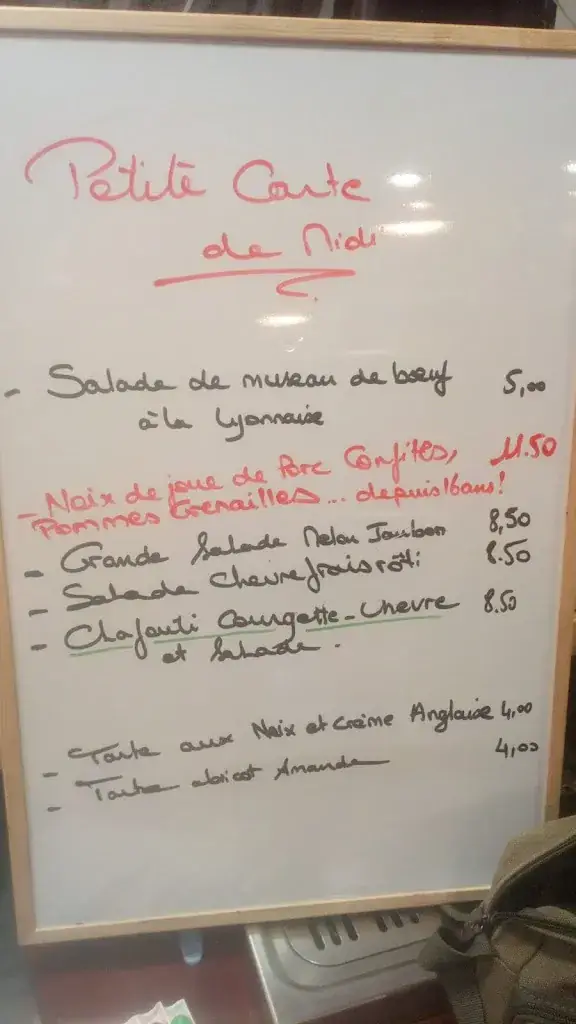 Petite Carte
de Midi
- Salade de museau de bœuf 5,00
à la Lyonnaise
- Noix de joue de Porc Confites, 11.50
Pommes Grenailles... depuis 16 ans!
- Grande Salade Melon Jambon 8,50
- Salade Chèvre frais rôti 8.50
- Clafouti Courgette-Chèvre 8.50
et Salade.
- Tarte aux Noix et crème Anglaise 4,00
- Tarte abricot Amande 4,00